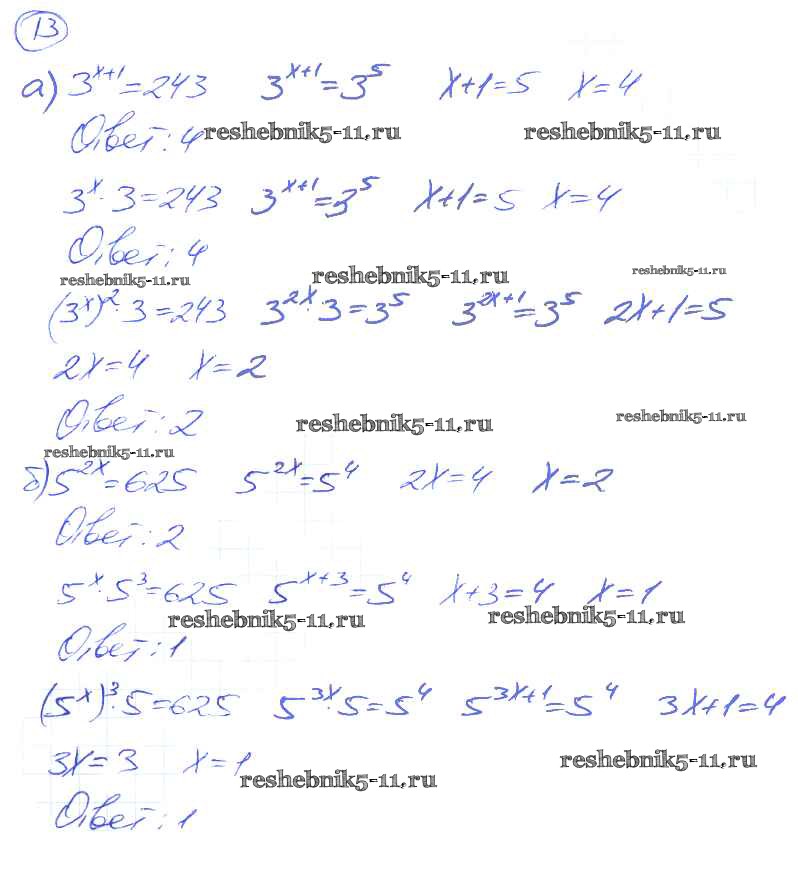 13
а) 3^(x+1) = 243 3^(x+1) = 3^5 x+1 = 5 x = 4
Ответ: 4 reshebnik5-11.ru reshebnik5-11.ru
3^x · 3 = 243 3^(x+1) = 3^5 x+1 = 5 x = 4
Ответ: 4
reshebnik5-11.ru reshebnik5-11.ru reshebnik5-11.ru
(3^x)^2 · 3 = 243 3^(2x) · 3 = 3^5 3^(2x+1) = 3^5 2x+1 = 5
2x = 4 x = 2
Ответ: 2 reshebnik5-11.ru reshebnik5-11.ru
reshebnik5-11.ru
б) 5^(2x) = 625 5^(2x) = 5^4 2x = 4 x = 2
Ответ: 2
5^x · 5^3 = 625 5^(x+3) = 5^4 x+3 = 4 x = 1
reshebnik5-11.ru reshebnik5-11.ru
Ответ: 1
(5^x)^3 · 5 = 625 5^(3x) · 5 = 5^4 5^(3x+1) = 5^4 3x+1 = 4
3x = 3 x = 1 reshebnik5-11.ru reshebnik5-11.ru
Ответ: 1